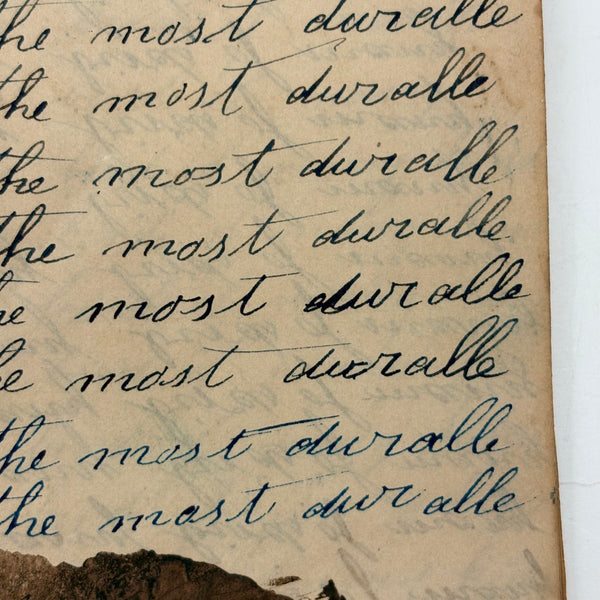 the most duralle
the most duralle
the most duralle
the most duralle
he most duralle
he most duralle
the most duralle
the most duralle